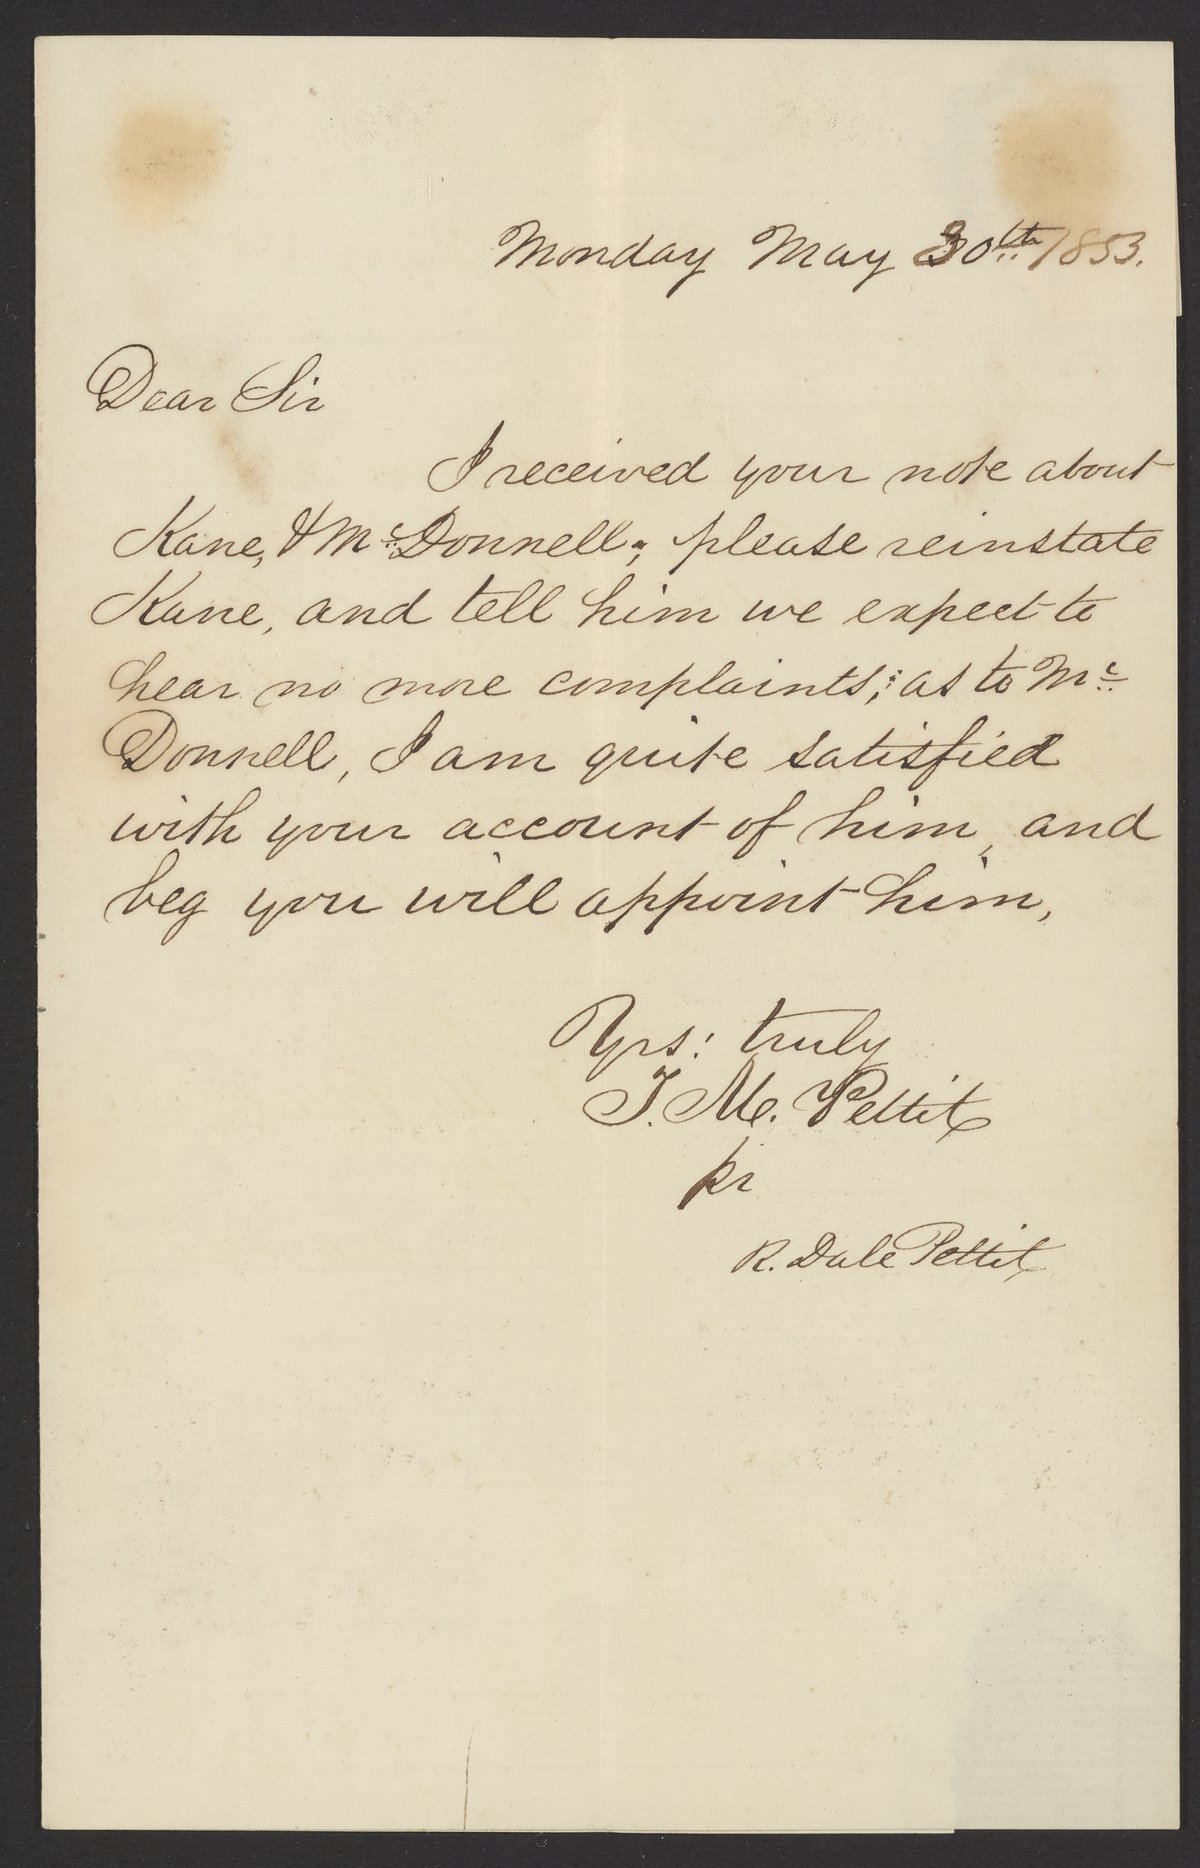 Monday May 30th 1853.
Dear Sir
I received your note about
Kane, & Mc Donnell; please reinstate
Kane, and tell him we expect to
hear no more complaints; as to Mc
Donnell, I am quite satisfied
with your account of him, and
beg you will appoint him,
Yrs: truly
T. M. Pettit
pr
R. Dale Pettit